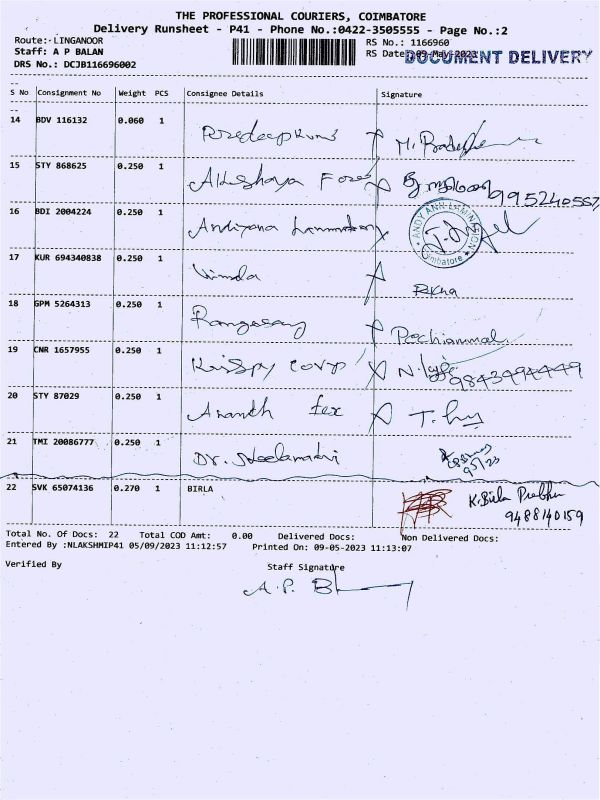 THE PROFESSIONAL COURIERS, COIMBATORE
Delivery Runsheet - P41 - Phone No.:0422-3505555 - Page No.:2
Route:-LINGANOOR
RS No.: 1166960
Staff: A P BALAN
RS Date: 09-May-2023
DOCUMENT DELIVERY
DRS No.: DCJB116696002
S No Consignment No Weight PCS Consignee Details Signature
14 BDV 116132 0.060 1 Pradeepkumar
15 STY 868625 0.250 1 Akshaya
16 BDI 2004224 0.250 1 Andyann Lamination
ANDY ANN LAMINATION
Coimbatore
17 KUR 694340838 0.250 1 Vimala
18 GPM 5264313 0.250 1 Rangasamy Pechiammal
19 CNR 1657955 0.250 1 Krispy corp 9843994449
20 STY 87029 0.250 1 Ananth tex
21 TMI 20086777 0.250 1 Dr.
22 SVK 65074136 0.270 1 BIRLA K. Birla Prabhu
9488140159
Total No. Of Docs: 22 Total COD Amt: 0.00 Delivered Docs: Non Delivered Docs:
Entered By :NLAKSHMIP41 05/09/2023 11:12:57 Printed On: 09-05-2023 11:13:07
Verified By Staff Signature
A.P. B